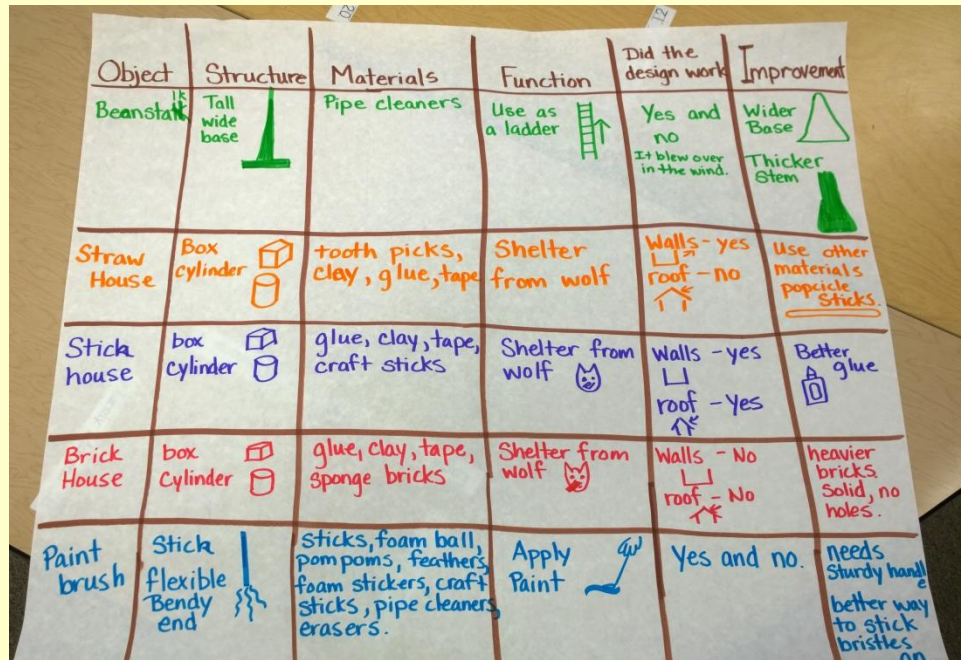 20
12
Object
Structure
Materials
Function
Did the
design work
Improvement
Beanstalk
Tall
wide
base
Pipe cleaners
Use as
a ladder
Yes and
no
It blew over
in the wind.
Wider
Base
Thicker
Stem
Straw
House
Box
cylinder
tooth picks,
clay, glue, tape
Shelter
from wolf
Walls - yes
roof - no
Use other
materials
popcicle
Sticks.
Stick
house
box
cylinder
glue, clay, tape,
craft sticks
Shelter from
wolf
Walls - yes
roof - Yes
Better
glue
Brick
House
box
Cylinder
glue, clay, tape,
sponge bricks
Shelter from
wolf
Walls - No
roof - No
heavier
bricks
Solid, no
holes.
Paint
brush
Stick
flexible
Bendy
end
sticks, foam ball,
pom poms, feathers,
foam stickers, craft
sticks, pipe cleaners,
erasers.
Apply
Paint
Yes and no.
needs
Sturdy handle
better way
to stick
bristles
on